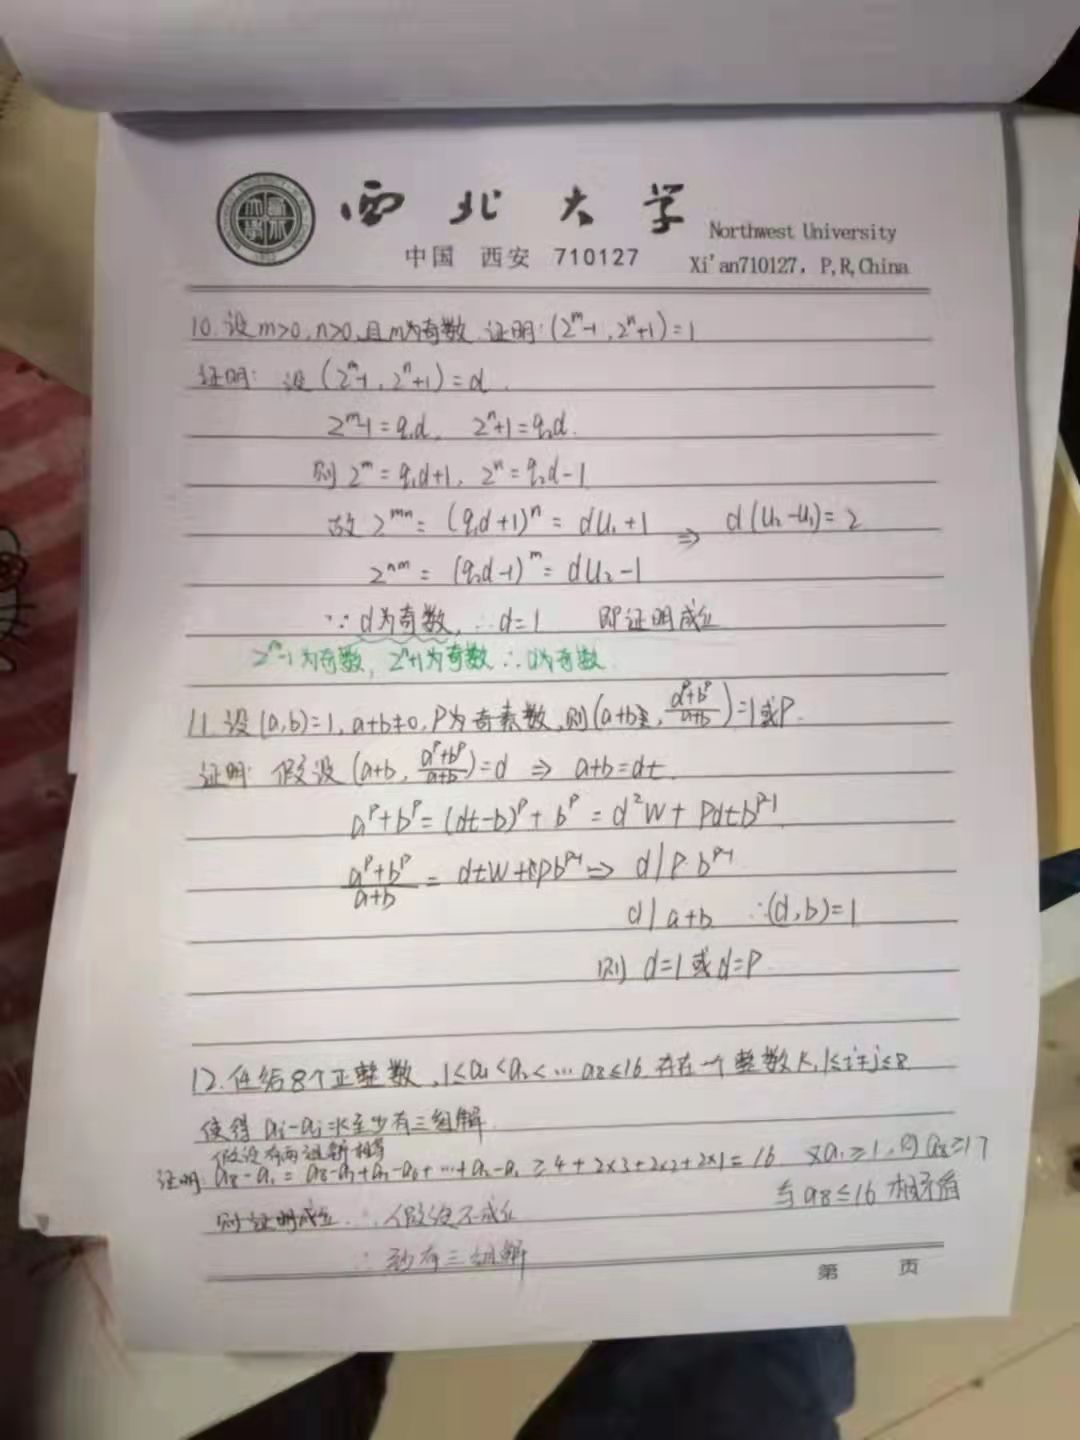 西北大学
Northwest University
中国 西安 710127
Xi'an710127, P,R,China
10. 设m>0, n>0, 且m为奇数. 证明: (2^m-1, 2^n+1)=1
证明: 设 (2^m-1, 2^n+1)=d.
2^m-1=q₁d, 2^n+1=q₂d.
则 2^m=q₁d+1, 2^n=q₂d-1
故 2^{mn}=(q₁d+1)^n=du₁+1 ⇒ d(u₂-u₁)=2
2^{nm}=(q₂d-1)^m=du₂-1
∵d为奇数, ∴d=1 即证明成立
2^m-1为奇数, 2^n+1为奇数 ∴d为奇数
11. 设(a,b)=1, a+b≠0, P为奇素数, 则(a+b, \frac{a^p+b^p}{a+b})=1或P.
证明: 假设(a+b, \frac{a^p+b^p}{a+b})=d ⇒ a+b=dt.
a^p+b^p=(dt-b)^p+b^p=d²W+Pdtb^{p-1}
\frac{a^p+b^p}{a+b}=dtW+Pb^{p-1} ⇒ d|P·b^{p-1}
d|a+b ∴(d,b)=1
则 d=1或d=P
12. 任给8个正整数, 1≤a₁<a₂<…a₈≤16 存在一个整数K, 1≤i≠j≤8
使得 ai-aj=k至少有三组解
假设有两组解相等
证明: a₈-a₁=a₈-a₇+a₇-a₆+…+a₂-a₁≥4+2×3+2×2+2×1=16 又a₁≥1, 则a₈≥17
与a₈≤16相矛盾
则证明成立 ∴假设不成立
∴至少有三组解
第 页